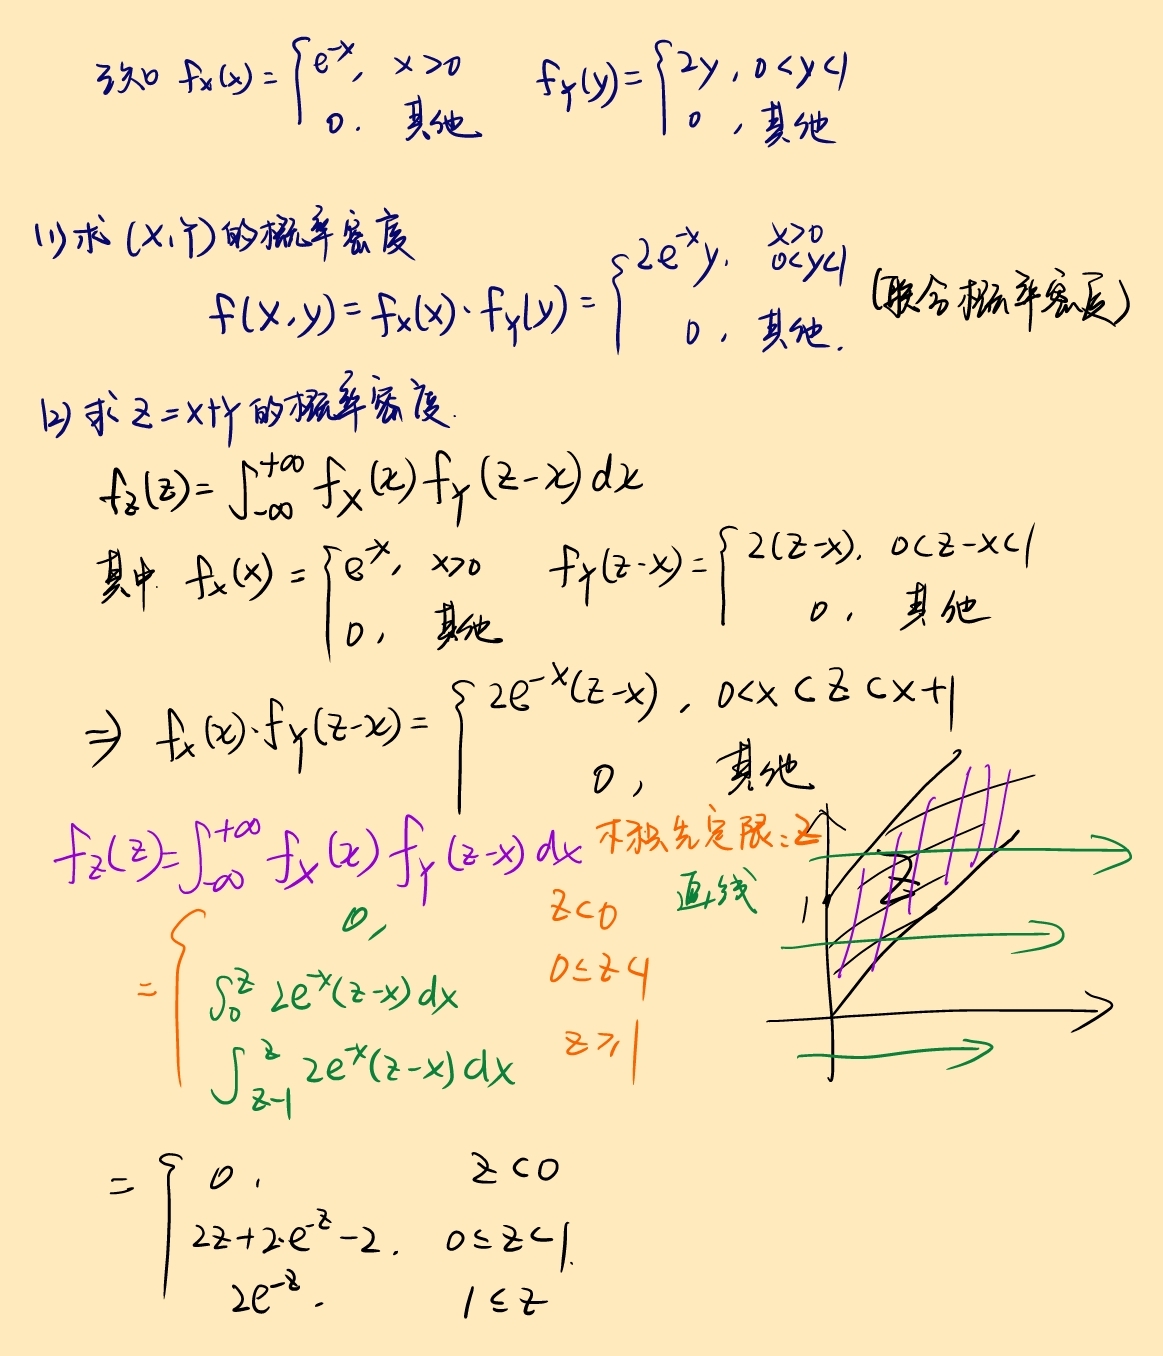 已知 fx(x) = { e^-x, x>0 ; 0. 其他 fY(y) = { 2y, 0<y<1 ; 0, 其他
(1) 求 (X,Y) 的概率密度
f(x,y) = fx(x)·fY(y) = { 2e^-x y, x>0 0<y<1 ; 0, 其他. (联合概率密度)
(2) 求 Z=X+Y 的概率密度.
fz(z) = ∫_-∞^+∞ fX(x) fY(z-x) dx
其中 fx(x) = { e^-x, x>0 ; 0, 其他 fY(z-x) = { 2(z-x), 0<z-x<1 ; 0, 其他
⇒ fx(x)·fY(z-x) = { 2e^-x(z-x), 0<x<z<x+1 ; 0, 其他
fz(z) = ∫_-∞^+∞ fX(x) fY(z-x) dx 不积先定限:z
直线
= { 0, z<0
∫_0^z 2e^-x(z-x) dx 0≤z<1
∫_z-1^z 2e^-x(z-x) dx z≥1
1 z
= { 0, z<0
2z+2·e^-z-2. 0≤z<1.
2e^-z. 1≤z